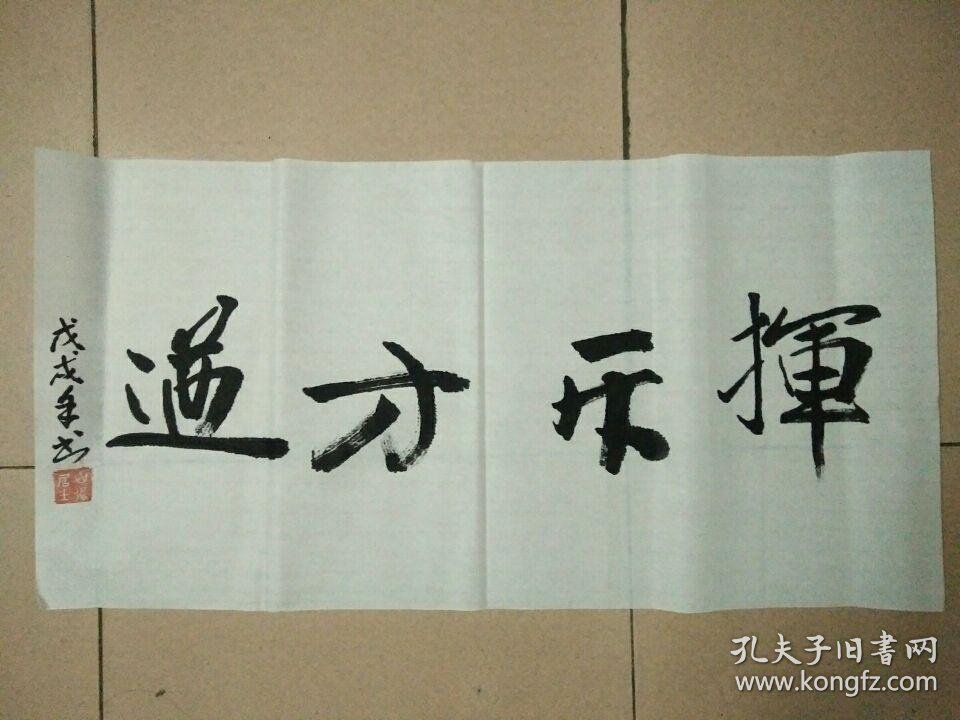 揮斥方遒
戊戌年书
居士
孔夫子旧書网
www.kongfz.com